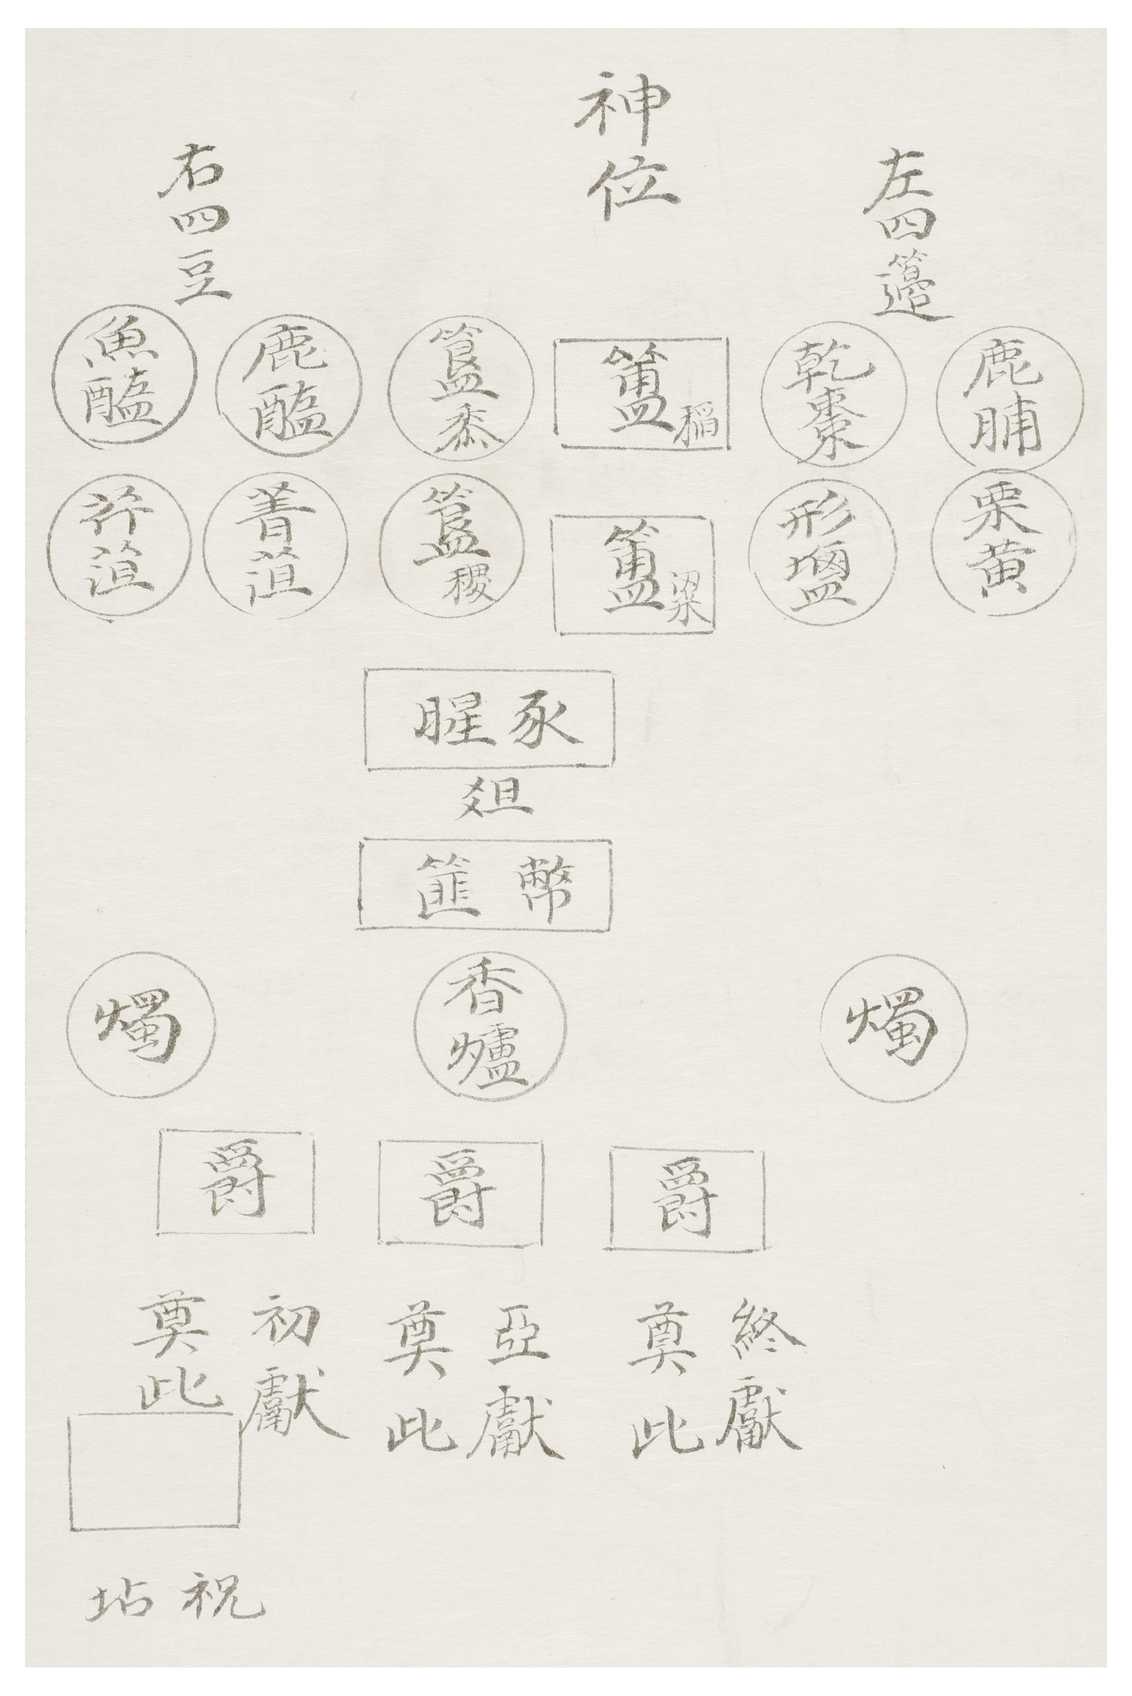 神位
左四籩
右四豆
鹿脯
乾棗
簠稻
簋黍
鹿醢
魚醢
栗黃
形鹽
簠粱
簋稷
菁菹
芹菹
豕腥
俎
幣篚
燭
香爐
燭
爵
爵
爵
終獻
奠此
亞獻
奠此
初獻
奠此
祝坫